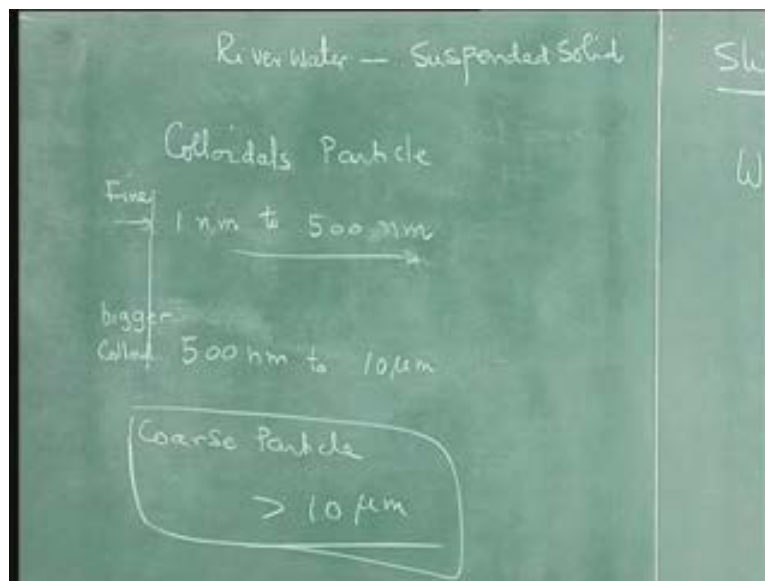 River Water — Suspended Solid
Colloidals Particle
Fine
1 nm to 500 nm
bigger
Colloid 500 nm to 10 μm
Coarse Particle
> 10 μm
W